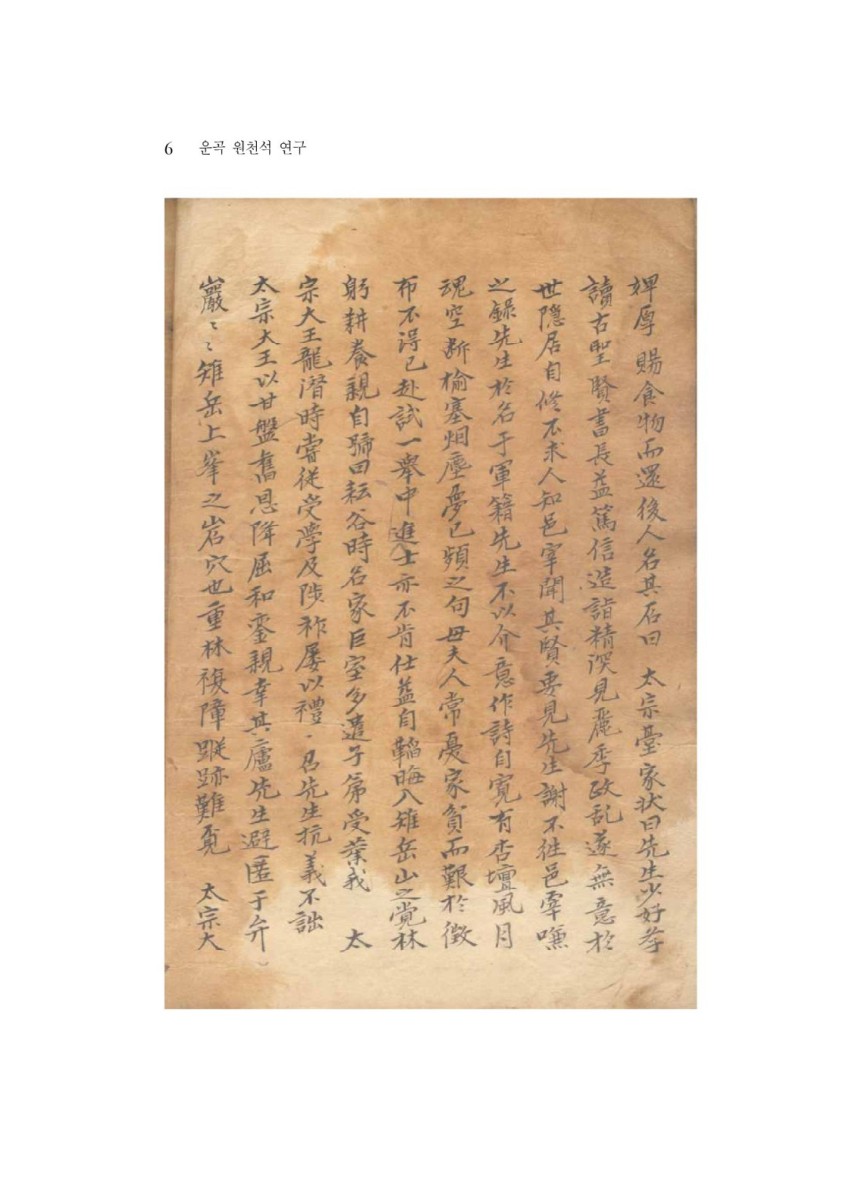 6 운곡 원천석 연구
婢厚 賜食物而還後人名其石曰 太宗臺家狀曰先生少好孝
讀古聖賢書長益篤信造詣精深見麗季政乱遂無意於
世隱居自修不求人知邑宰聞其賢要見先生謝不往邑宰嗛
之錄先生於名于軍籍先生不以介意作詩自寬有杏壇風月
魂空斷楡塞烟塵夢已頻之句母夫人常憂家貧而艱於徵
布不淂已赴試一擧中進士亦不肯仕盖自韜晦入雉岳山之覺林
躬耕養親自號曰耘谷時名家巨室多遣子弟受業我 太
宗大王龍潛時嘗從受學及陟祚屢以禮召先生抗義不詘
太宗大王以甘盤舊恩降屈和鑾親幸其廬先生避匿于弁
巖〻雉岳上峯之岩穴也重林複障蹤跡難覓 太宗大